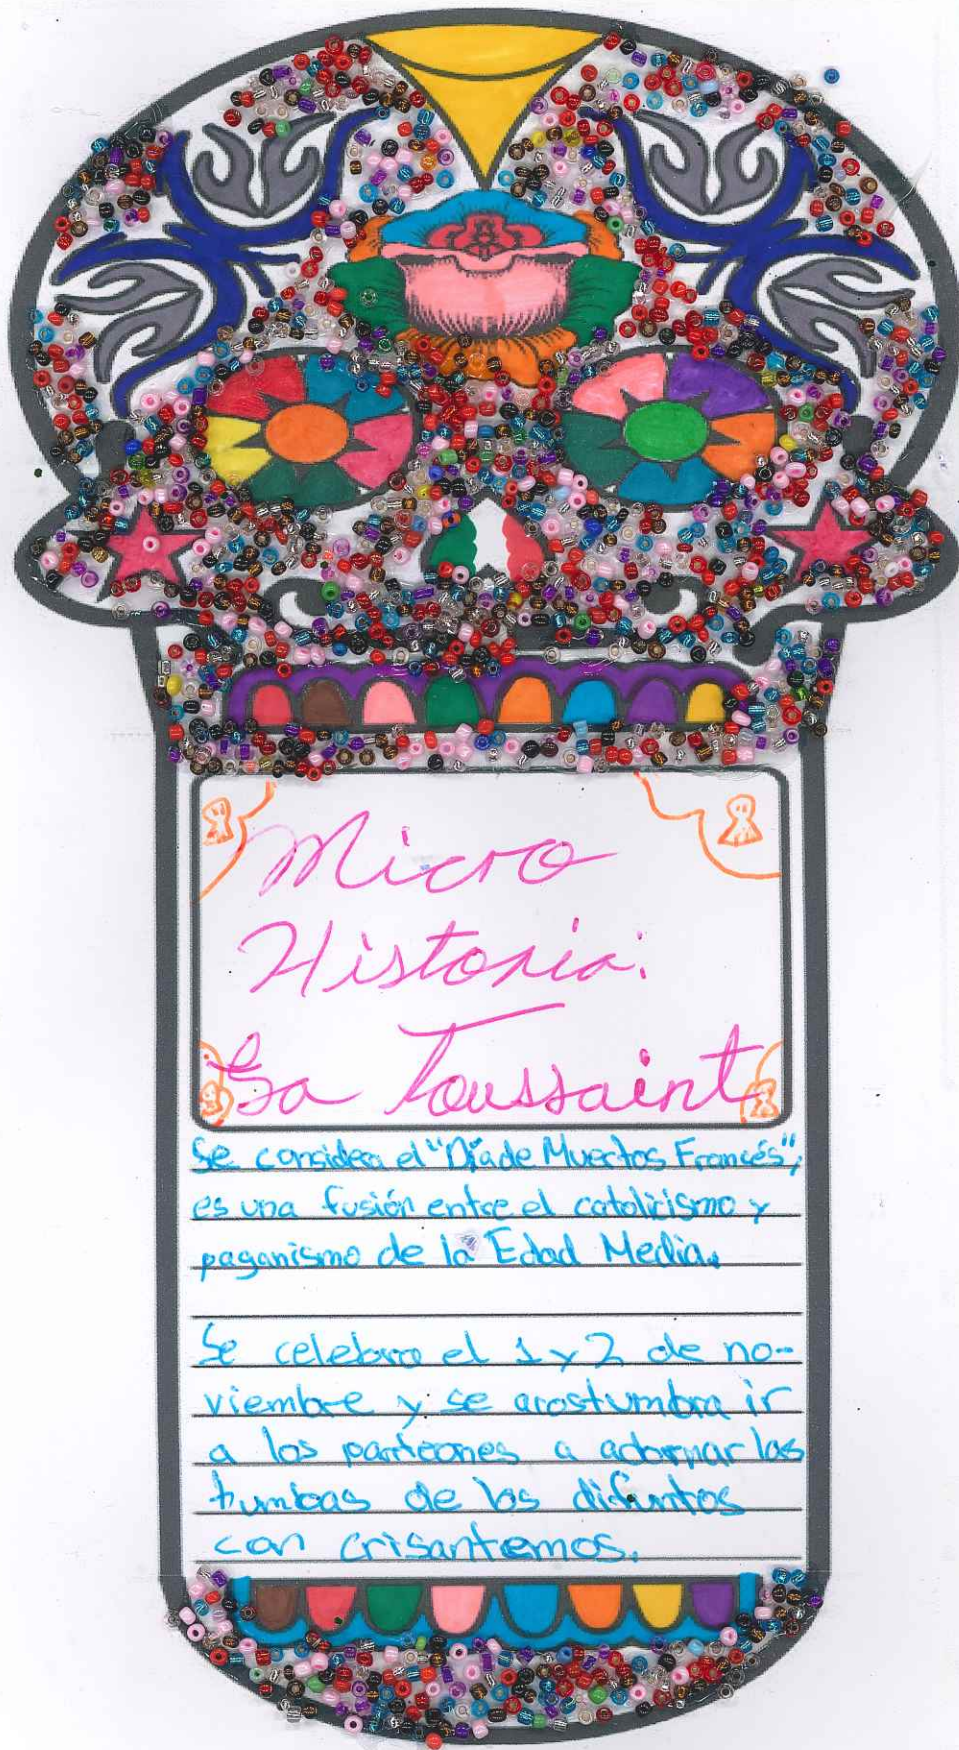 Micro
Historia:
La Toussaint
Se considera el "Día de Muertos Francés",
es una fusión entre el catolicismo y
paganismo de la Edad Media.
Se celebra el 1 y 2 de no-
viembre y se acostumbra ir
a los panteones a adornar las
tumbas de los difuntos
con crisantemos.